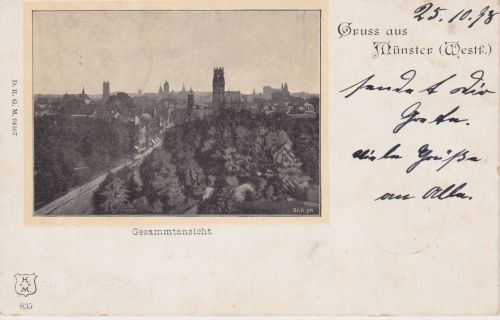 25.10.98
Gruss aus
Münster (Westf.)
sendet Dir
Grete.
viele Grüße
an Alle.
D. R. G. M. 94307
Gesammtansicht.
H.
M.
835